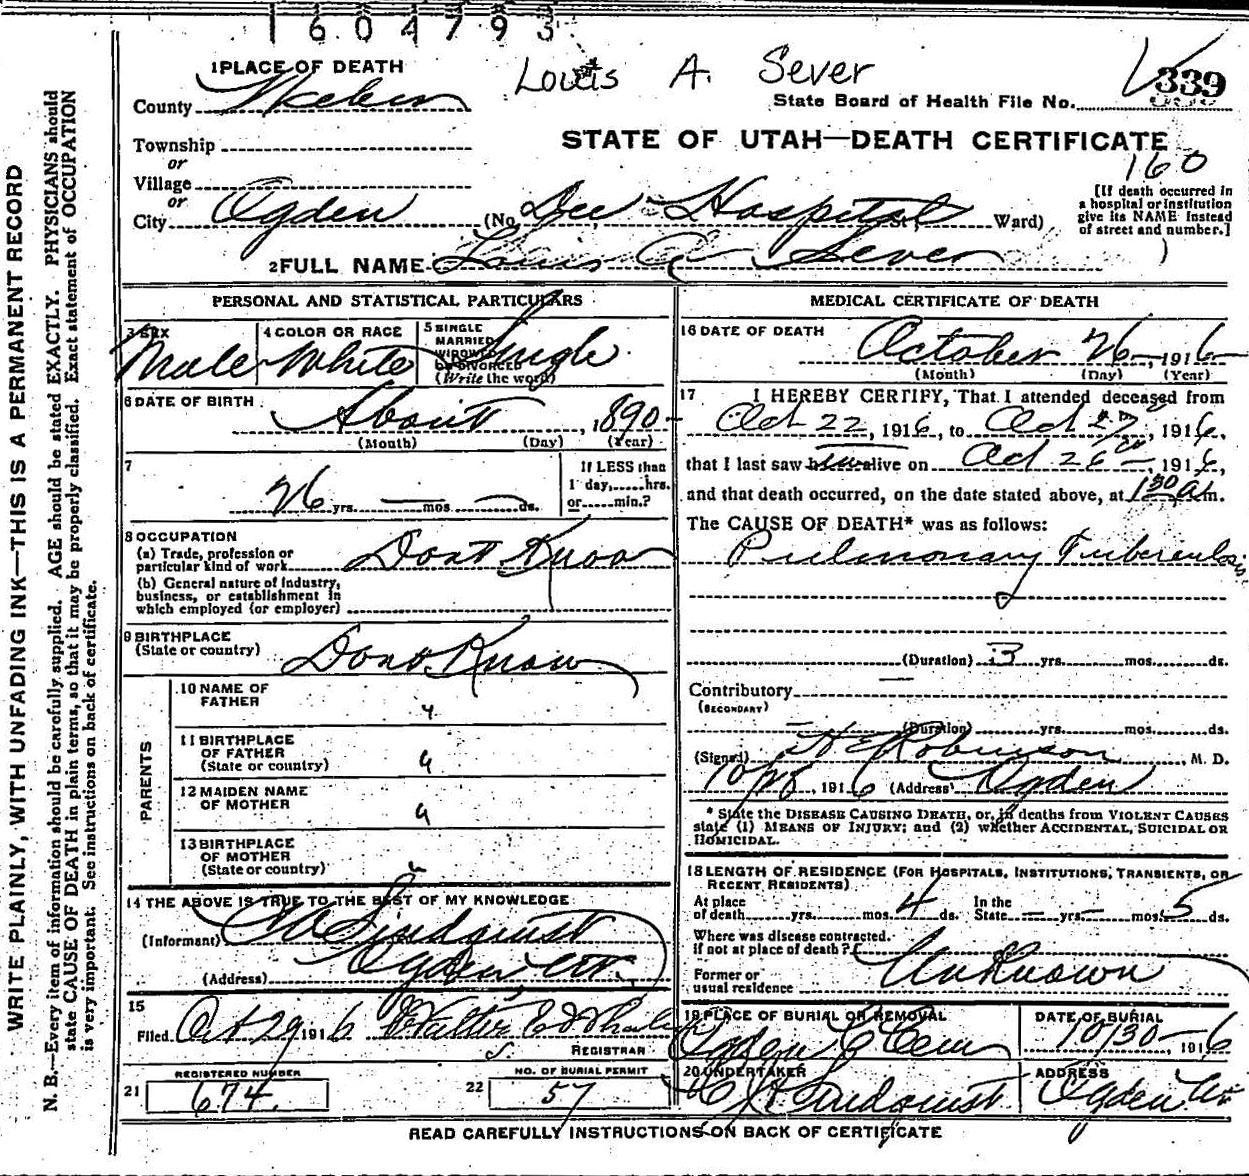 1604793
Louis A. Sever
339
1 PLACE OF DEATH
County Weber
State Board of Health File No.
Township
STATE OF UTAH—DEATH CERTIFICATE
or
160
Village
or
City Ogden (No. Dee Hospital St., Ward)
[If death occurred in a hospital or institution give its NAME instead of street and number.]
2 FULL NAME Louis A. Sever
PERSONAL AND STATISTICAL PARTICULARS
3 SEX Male
4 COLOR OR RACE White
5 SINGLE MARRIED WIDOWED OR DIVORCED (Write the word) Single
6 DATE OF BIRTH About, 1890
(Month) (Day) (Year)
7
26 yrs. — mos. — ds.
If LESS than 1 day, hrs. or min.?
8 OCCUPATION
(a) Trade, profession or particular kind of work Dont Know
(b) General nature of industry, business, or establishment in which employed (or employer)
9 BIRTHPLACE
(State or country) Dont Know
PARENTS
10 NAME OF FATHER "
11 BIRTHPLACE OF FATHER (State or country) "
12 MAIDEN NAME OF MOTHER "
13 BIRTHPLACE OF MOTHER (State or country) "
14 THE ABOVE IS TRUE TO THE BEST OF MY KNOWLEDGE
(Informant) Lindquist
(Address) Ogden Ut.
15
Filed Oct 29 1916 Walter
REGISTRAR
21 REGISTERED NUMBER 674
22 NO. OF BURIAL PERMIT 57
MEDICAL CERTIFICATE OF DEATH
16 DATE OF DEATH October 26 — 1916
(Month) (Day) (Year)
17 I HEREBY CERTIFY, That I attended deceased from
Oct 22, 1916, to Oct 27, 1916,
that I last saw him alive on Oct 26, 1916,
and that death occurred, on the date stated above, at 1 30 a m.
The CAUSE OF DEATH* was as follows:
Pulmonary Tuberculosis
(Duration) 3 yrs. mos. ds.
Contributory —
(SECONDARY)
(Duration) yrs. mos. ds.
(Signed) H E Robinson, M. D.
1916 (Address) Ogden
* State the DISEASE CAUSING DEATH, or, in deaths from VIOLENT CAUSES
state (1) MEANS OF INJURY; and (2) whether ACCIDENTAL, SUICIDAL OR
HOMICIDAL.
18 LENGTH OF RESIDENCE (FOR HOSPITALS, INSTITUTIONS, TRANSIENTS, OR
RECENT RESIDENTS)
At place of death yrs. mos. 4 ds. In the State — yrs. — mos. 5 ds.
Where was disease contracted.
If not at place of death?
Former or usual residence Unknown
19 PLACE OF BURIAL OR REMOVAL Ogden C Cem
DATE OF BURIAL 10/30 — 1916
20 UNDERTAKER Lindquist
ADDRESS Ogden Ut
READ CAREFULLY INSTRUCTIONS ON BACK OF CERTIFICATE
WRITE PLAINLY, WITH UNFADING INK—THIS IS A PERMANENT RECORD
N. B.—Every item of information should be carefully supplied. AGE should be stated EXACTLY. PHYSICIANS should
state CAUSE OF DEATH in plain terms, so that it may be properly classified. Exact statement of OCCUPATION
is very important. See instructions on back of certificate.